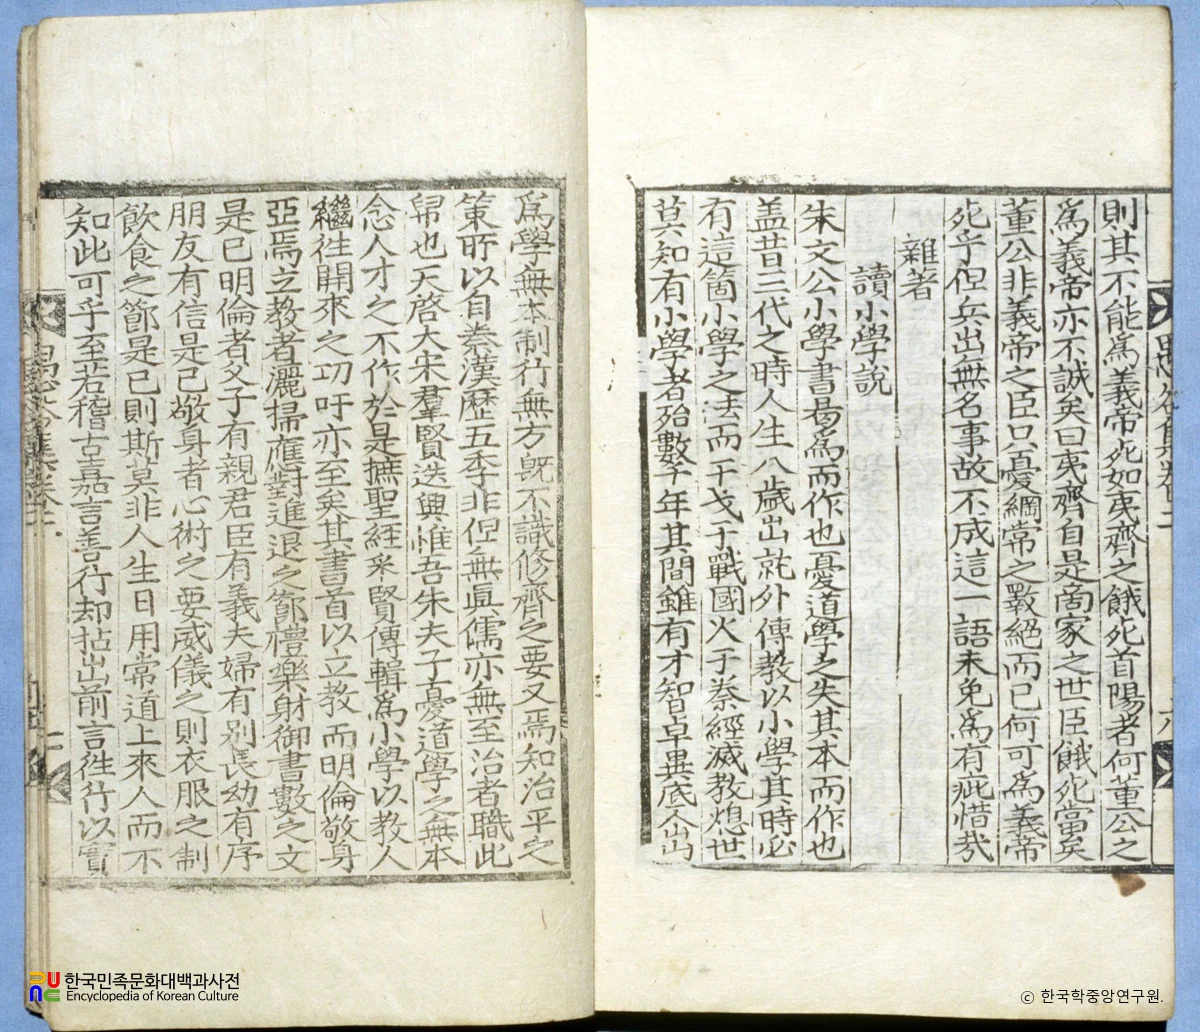 則其不能爲義帝死如夷齊之餓死首陽者何董公之
爲義帝亦不誠矣曰夷齊自是啇家之世臣餓死當矣
董公非義帝之臣只憂綱常之斁絕而已何可爲義帝
死乎但兵出無名事故不成這一語未免爲有疵惜哉
雜著
讀小學說
朱文公小學書曷爲而作也憂道學之失其本而作也
盖昔三代之時人生八歲出就外傳教以小學其時必
有這箇小學之法而干戈于戰國火于秦經滅教熄世
莫知有小學者殆數千年其間雖有才智卓異底人出
爲學無本制行無方旣不識修齊之要又焉知治平之
策所以自秦漢歷五季非但無眞儒亦無至治者職此
帰也天啓大宋羣賢迭興惟吾朱夫子憂道學之無本
念人才之不作於是摭聖經采賢傳輯爲小學以教人
繼徃開來之功吁亦至矣其書首以立教而明倫敬身
亞焉立教者灑掃應對進退之節禮樂射御書數之文
是已明倫者父子有親君臣有義夫婦有别長幼有序
朋友有信是已敬身者心術之要威儀之則衣服之制
飮食之節是已則斯莫非人生日用常道上來人而不
知此可乎至若稽古嘉言善行却拈出前言徃行以實
한국민족문화대백과사전
Encyclopedia of Korean Culture
© 한국학중앙연구원.